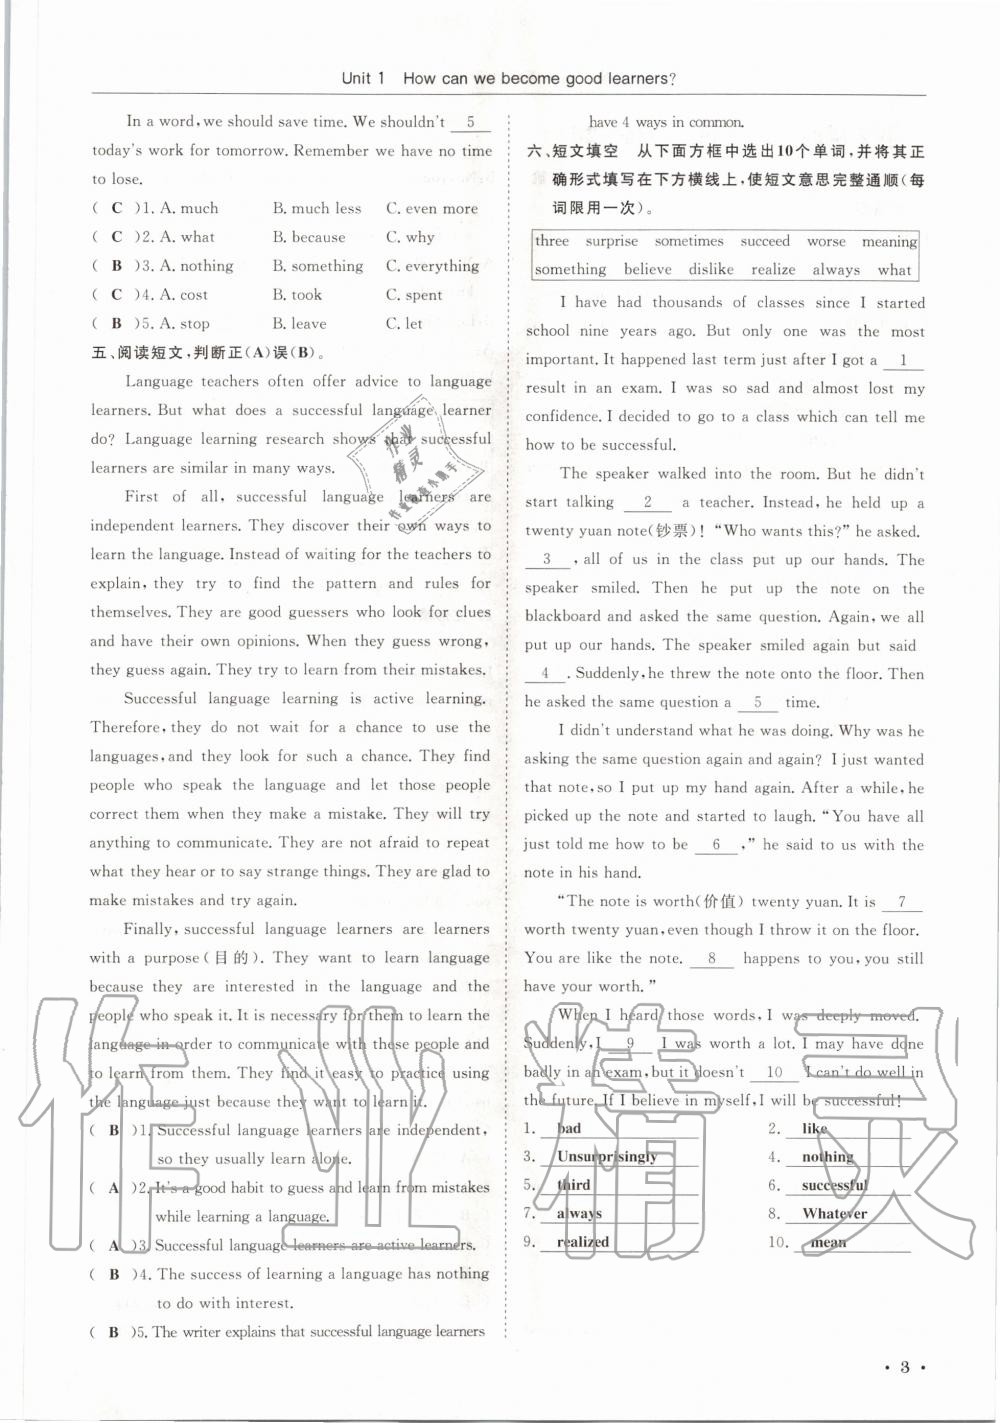 Unit 1 How can we become good learners?
In a word, we should save time. We shouldn't 5
today's work for tomorrow. Remember we have no time
to lose.
( C )1. A. much B. much less C. even more
( C )2. A. what B. because C. why
( B )3. A. nothing B. something C. everything
( C )4. A. cost B. took C. spent
( B )5. A. stop B. leave C. let
五、阅读短文,判断正(A)误(B)。
Language teachers often offer advice to language
learners. But what does a successful language learner
do? Language learning research shows that successful
learners are similar in many ways.
First of all, successful language learners are
independent learners. They discover their own ways to
learn the language. Instead of waiting for the teachers to
explain, they try to find the pattern and rules for
themselves. They are good guessers who look for clues
and have their own opinions. When they guess wrong,
they guess again. They try to learn from their mistakes.
Successful language learning is active learning.
Therefore, they do not wait for a chance to use the
languages, and they look for such a chance. They find
people who speak the language and let those people
correct them when they make a mistake. They will try
anything to communicate. They are not afraid to repeat
what they hear or to say strange things. They are glad to
make mistakes and try again.
Finally, successful language learners are learners
with a purpose(目的). They want to learn language
because they are interested in the language and the
people who speak it. It is necessary for them to learn the
language in order to communicate with these people and
to learn from them. They find it easy to practice using
the language just because they want to learn it.
( B )1. Successful language learners are independent,
so they usually learn alone.
( A )2. It's a good habit to guess and learn from mistakes
while learning a language.
( A )3. Successful language learners are active learners.
( B )4. The success of learning a language has nothing
to do with interest.
( B )5. The writer explains that successful language learners
have 4 ways in common.
六、短文填空 从下面方框中选出10个单词,并将其正
确形式填写在下方横线上,使短文意思完整通顺(每
词限用一次)。
three surprise sometimes succeed worse meaning
something believe dislike realize always what
I have had thousands of classes since I started
school nine years ago. But only one was the most
important. It happened last term just after I got a 1
result in an exam. I was so sad and almost lost my
confidence. I decided to go to a class which can tell me
how to be successful.
The speaker walked into the room. But he didn't
start talking 2 a teacher. Instead, he held up a
twenty yuan note(钞票)! “Who wants this?” he asked.
3 , all of us in the class put up our hands. The
speaker smiled. Then he put up the note on the
blackboard and asked the same question. Again, we all
put up our hands. The speaker smiled again but said
4 . Suddenly, he threw the note onto the floor. Then
he asked the same question a 5 time.
I didn't understand what he was doing. Why was he
asking the same question again and again? I just wanted
that note, so I put up my hand again. After a while, he
picked up the note and started to laugh. “You have all
just told me how to be 6 ,” he said to us with the
note in his hand.
“The note is worth(价值) twenty yuan. It is 7
worth twenty yuan, even though I throw it on the floor.
You are like the note. 8 happens to you, you still
have your worth.”
When I heard those words, I was deeply moved.
Suddenly, I 9 I was worth a lot. I may have done
badly in an exam, but it doesn't 10 I can't do well in
the future. If I believe in myself, I will be successful!
1. bad 2. like
3. Unsurprisingly 4. nothing
5. third 6. successful
7. always 8. Whatever
9. realized 10. mean
· 3 ·
作业精灵
作业精灵